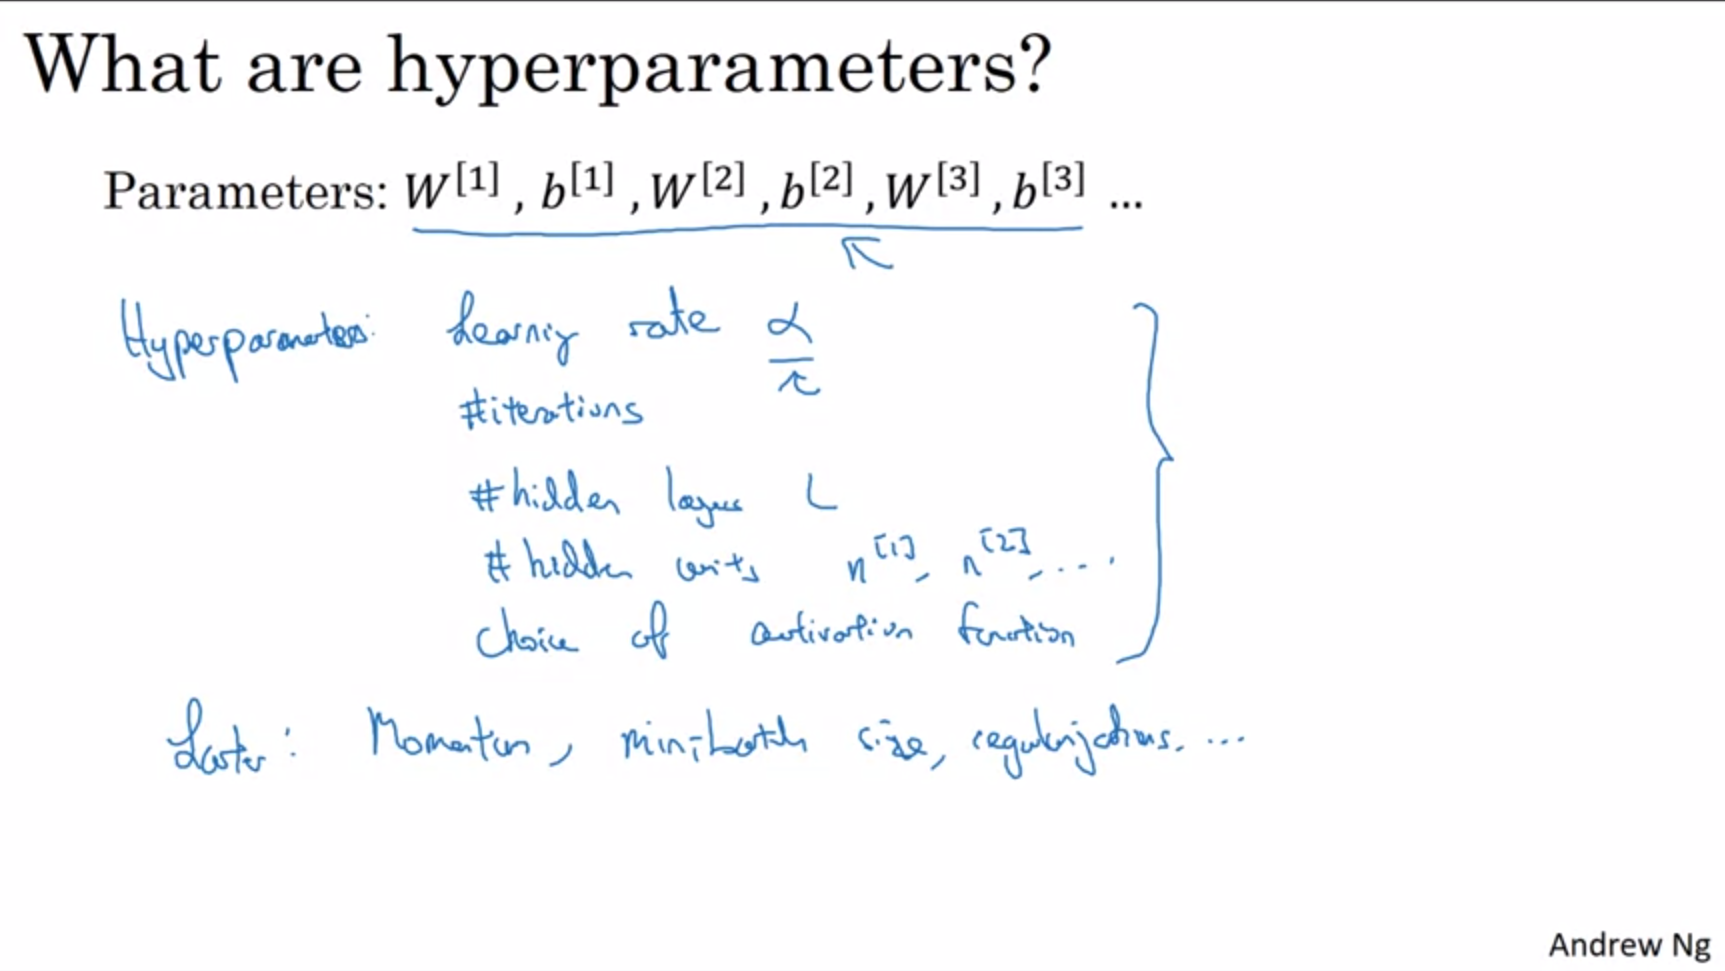 What are hyperparameters?
Parameters: W^[1] , b^[1] , W^[2] , b^[2] , W^[3] , b^[3] ...
Hyperparameters: Learning rate α
#iterations
#hidden layers L
# hidden units n^[1], n^[2], ....
Choice of activation function
Later: Momentum, minibatch size, regularizations, ...
Andrew Ng